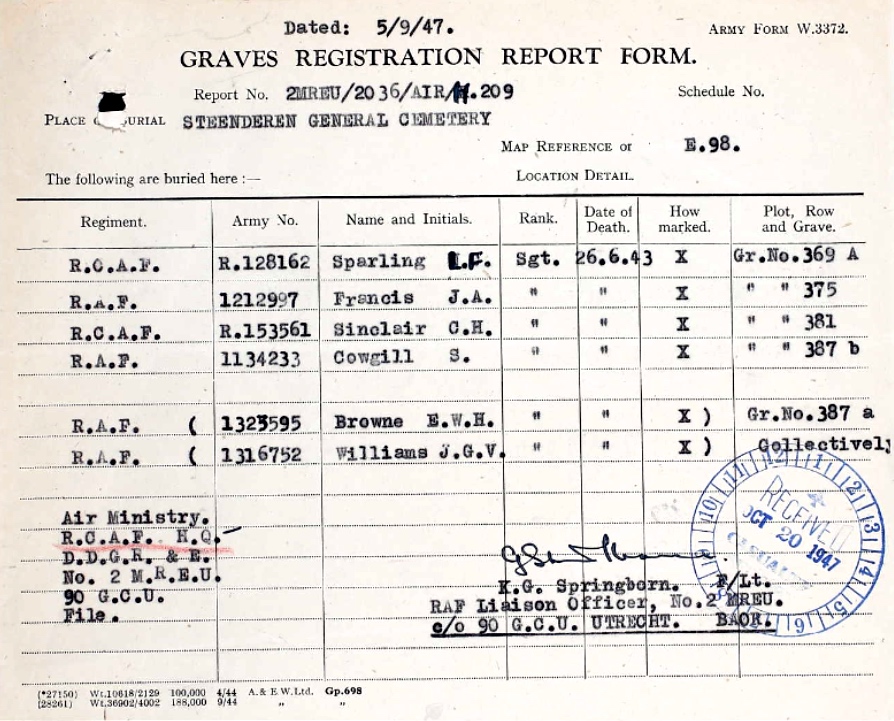 Dated: 5/9/47. ARMY FORM W.3372.
GRAVES REGISTRATION REPORT FORM.
Report No. 2MREU/2036/AIR/H.209 Schedule No.
PLACE OF BURIAL STEENDEREN GENERAL CEMETERY
MAP REFERENCE or E.98.
The following are buried here :— LOCATION DETAIL.
Regiment. Army No. Name and Initials. Rank. Date of Death. How marked. Plot, Row and Grave.
R.C.A.F. R.128162 Sparling L.F. Sgt. 26.6.43 X Gr.No.369 A
R.A.F. 1212997 Francis J.A. " " X " " 375
R.C.A.F. R.153561 Sinclair C.H. " " X " " 381
R.A.F. 1134233 Cowgill S. " " X " " 387 b
R.A.F. ( 1323595 Browne E.W.H. " " X ) Gr.No.387 a
R.A.F. ( 1316752 Williams J.G.V. " " X ) Collectively
Air Ministry.
R.C.A.F. H.Q.
D.D.G.R. & E.
No. 2 M.R.E.U.
90 G.C.U.
File.
RECEIVED
OCT 20 1947
K.G. Springborn. F/Lt.
RAF Liaison Officer, No.2 MREU.
c/o 90 G.C.U. UTRECHT. BAOR.
(*27150) Wt.10618/2129 100,000 4/44 A. & E W. Ltd. Gp.698
(28261) Wt.36902/4002 188,000 9/44 " "